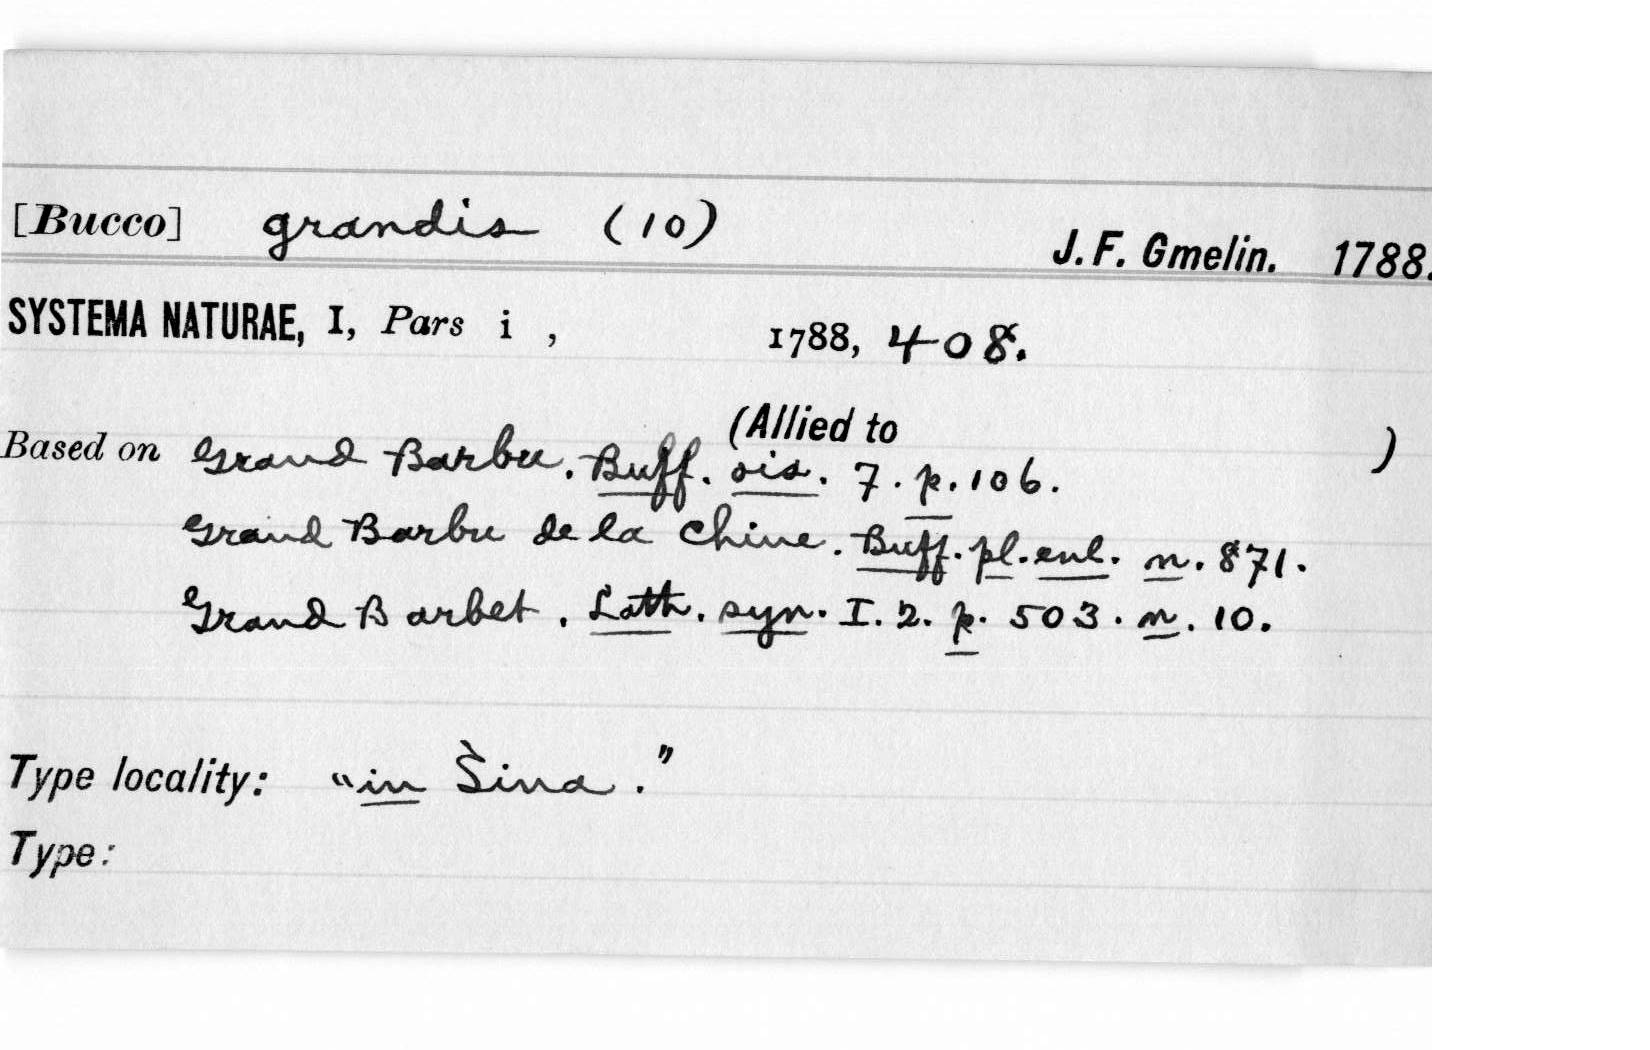 [Bucco] grandis (10)
J. F. Gmelin. 1788.
SYSTEMA NATURAE, I, Pars i , 1788, 408.
(Allied to )
Based on Grand Barbu. Buff. ois. 7. p. 106.
Grand Barbu de la Chine. Buff. pl. enl. n. 871.
Grand Barbet. Lath. syn. I. 2. p. 503. n. 10.
Type locality: "in Sina."
Type: